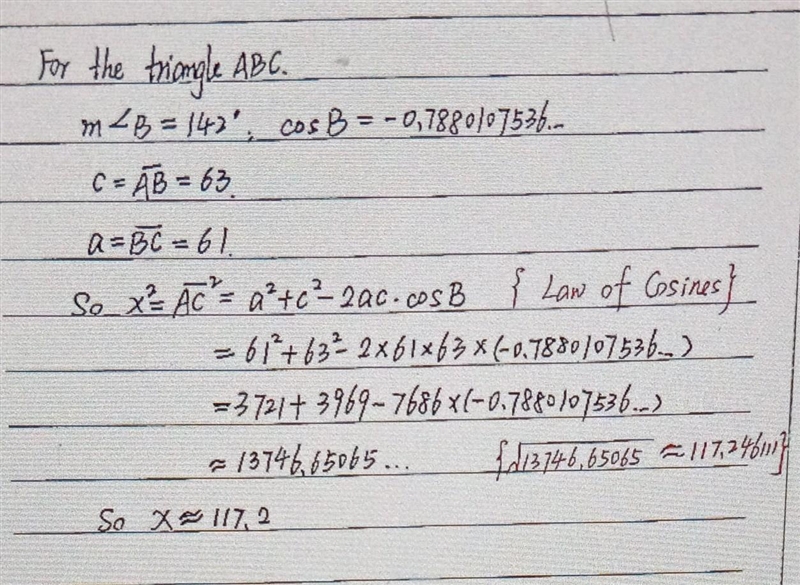 For the triangle ABC.
m∠B = 142°, cos B = -0.7880107536...
c = A̅B̅ = 63.
a = B̅C̅ = 61.
So x² = A̅C̅² = a² + c² - 2ac·cosB { Law of Cosines}
= 61² + 63² - 2×61×63×(-0.7880107536...)
= 3721 + 3969 - 7686×(-0.7880107536...)
≈ 13746.65065... {√13746.65065 ≈ 117.246111}
So x ≈ 117.2